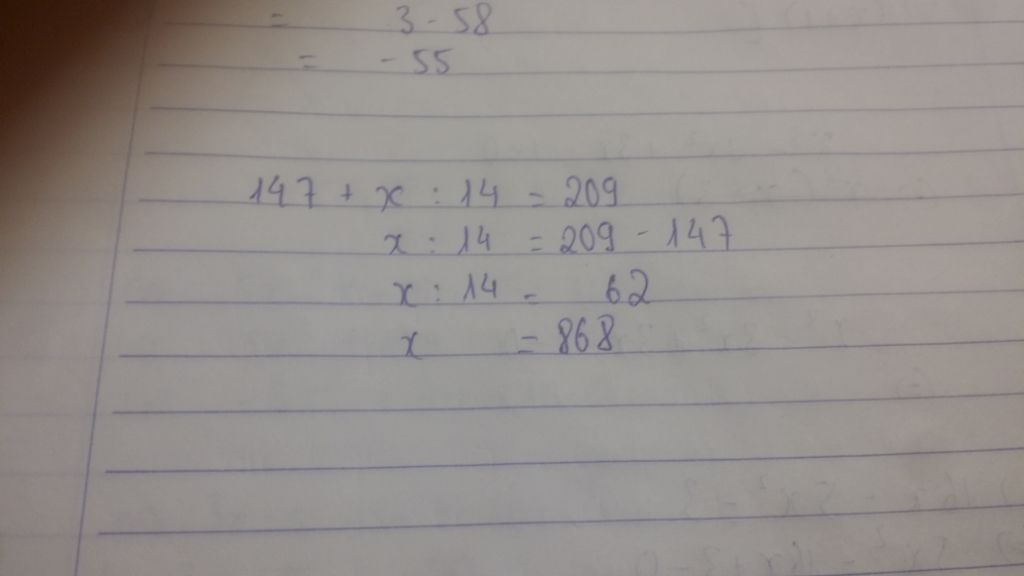 = 3 - 58
= - 55
147 + x : 14 = 209
x : 14 = 209 - 147
x : 14 = 62
x = 868